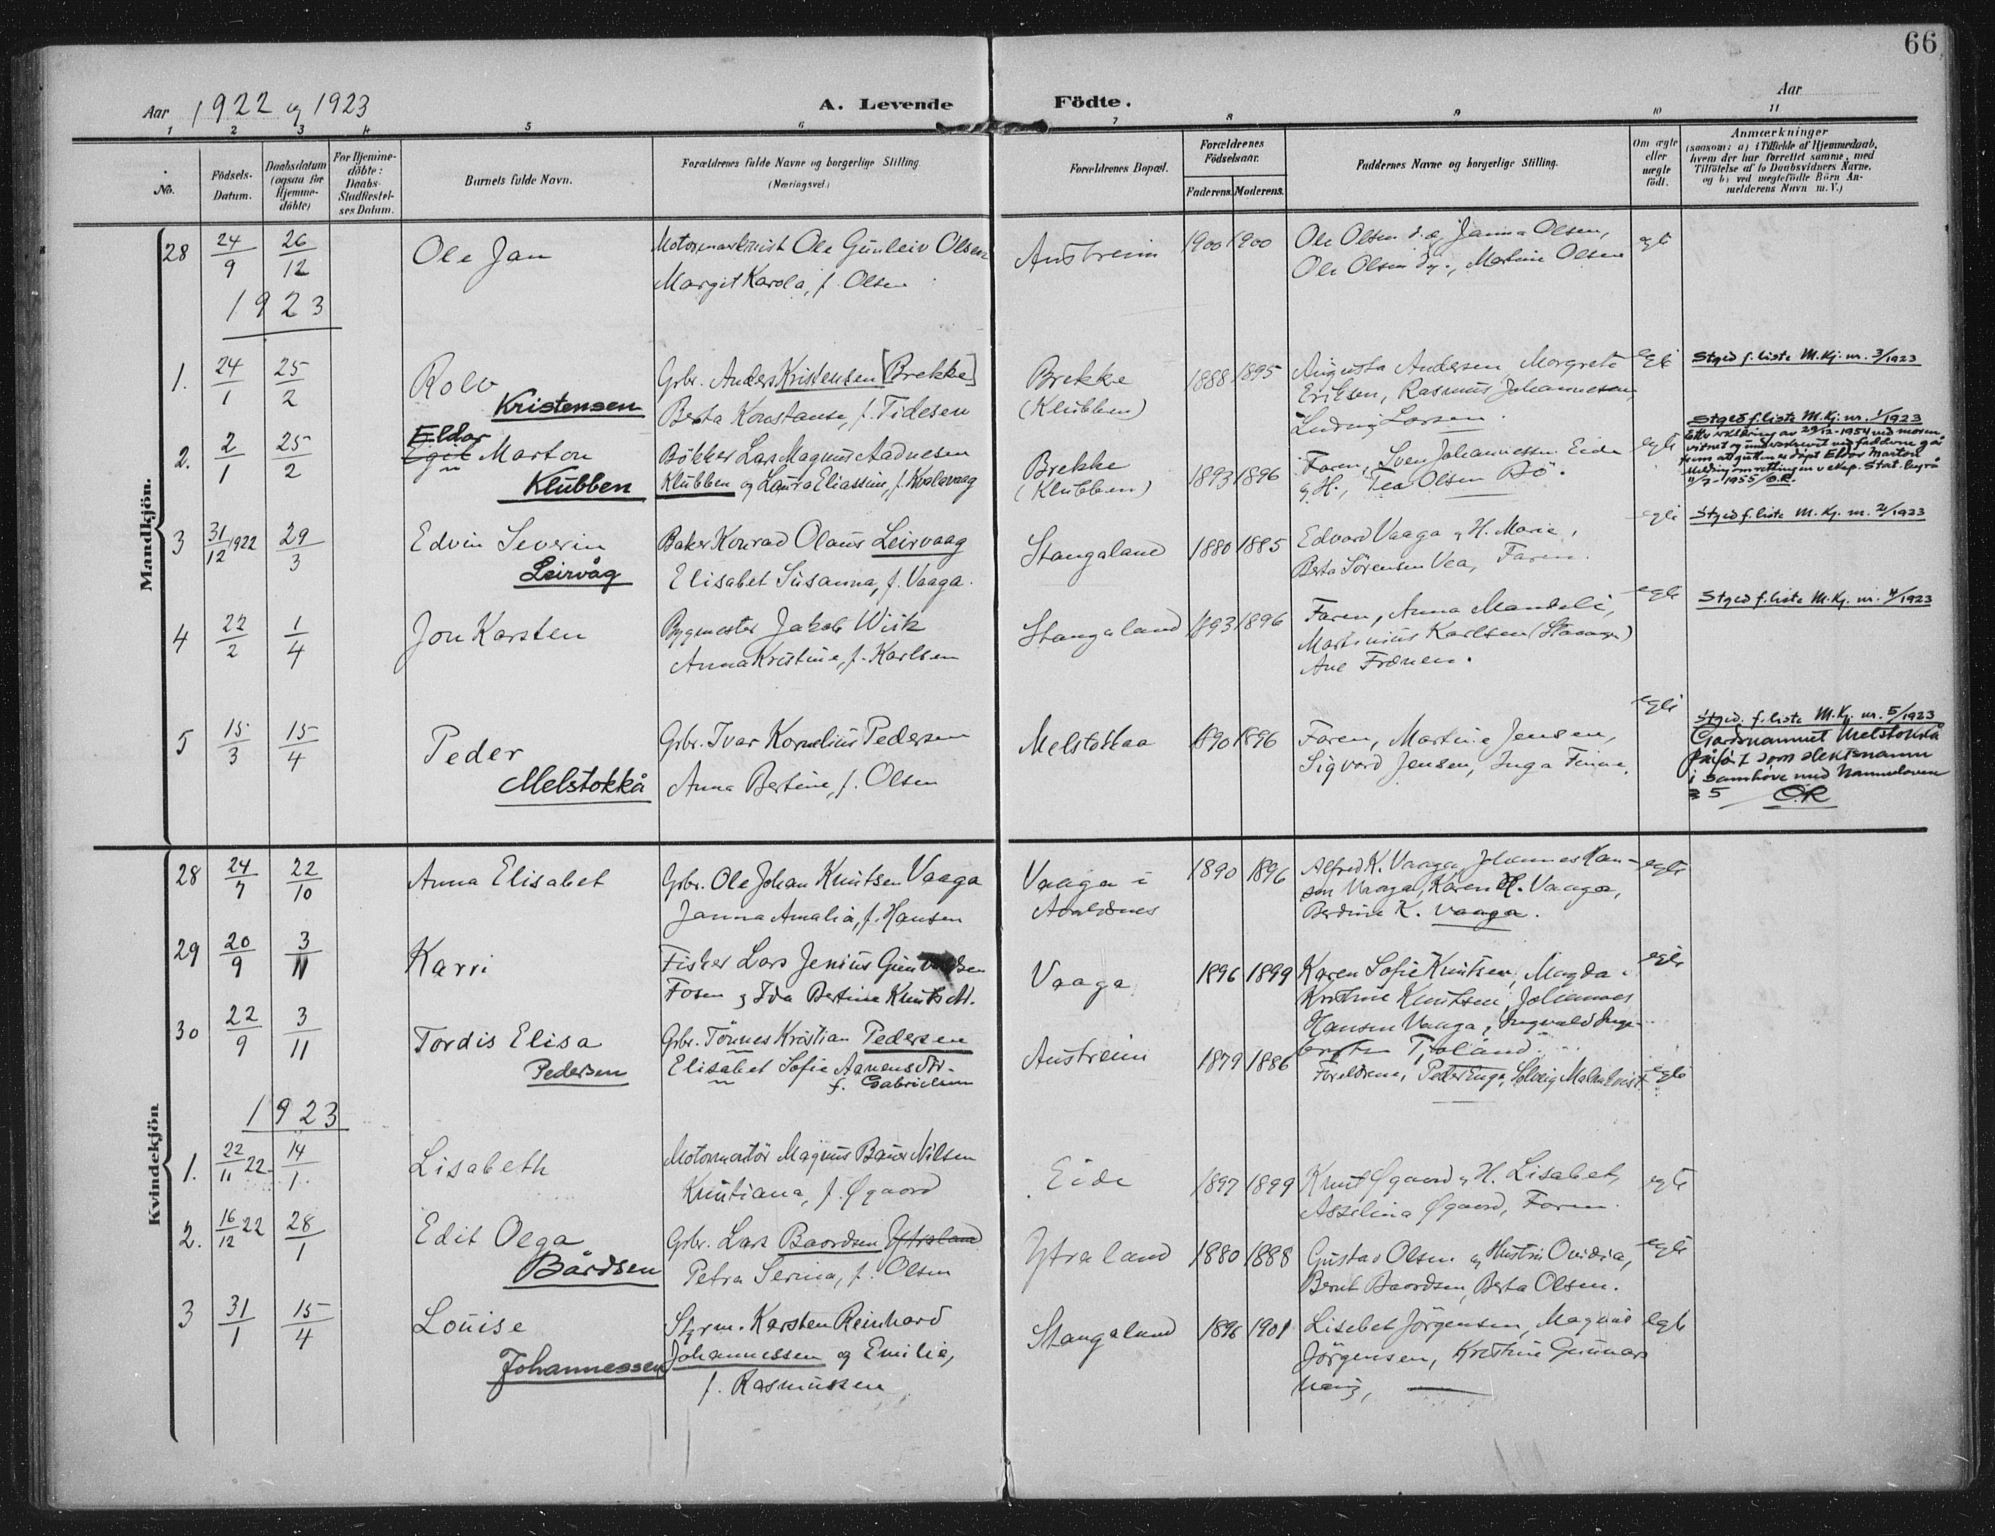 66
Aar 1922 og 1923
A. Levende Födte.
Aar
1 2 3 4 5 6 7 8 9 10 11
No.
Födsels-Datum.
Daabsdatum (ogsaa for Hjemme-döbte)
For Hjemme-döbte: Daabs-Stadfæstel-ses Datum.
Barnets fulde Navn.
Forældrenes fulde Navne og borgerlige Stilling.
(Næringsvei.)
Forældrenes Bopæl.
Forældrenes Födselsaar.
Faderens. Moderens.
Faddernes Navne og borgerlige Stilling.
Om ægte eller uægte födt.
Anmærkninger
(saasom: a) i Tilfælde af Hjemmedaab,
hvem der har forrettet samme, med
Tilföielse af to Daabsvidners Navne,
og b) ved uægtefödte Börn An-
melderens Navn m. V.)
Mandkjön.
28 24/9 26/12 Ole Jan
Ole Gunleiv Olsen
Margit Karola, f. Olsen
Austreim 1900 1900
Ole Olsen d.æ, Janna Olsen,
Ole Olsen d.y., Martine Olsen
egte
1923
1. 24/1 25/2 Rolv
Kristensen
Grbr. Anders Kristensen [Brekke]
Berta Konstanse, f. Tidesen
Brekke
(Klubben)
1888 1895
Augusta Andersen Margrete
Eriksen, Rasmus Johannesen,
Ludvig Larsen.
egte
Stged f. liste M.Kj. nr. 3/1923
2. 2/1 25/2 Eldar
Egil Marton
Klubben
Bökker Lars Magnus Aadnesen
Klubben og Laura Eliassine, f. Kvalevaag
Brekke
(Klubben)
1893 1896
Faren, Sven Johannessen Eide
og H., Tea Olsen Bö.
egte
Stged f. liste M.Kj. nr. 1/1923
Etter erklæring av 29/12-1954 ved moren
vitnet og underskrevet
döpt Eldar Marton
11/7-1955/O.R.
3 31/12 1922 29/3 Edvin Severin
Leirvåg
Baker Konrad Olaus Leirvaag
Elisabet Susanna, f. Vaaga.
Stangaland 1880 1885
Edvard Vaaga og H. Marie,
Berta Sörensen Vea, Faren.
egte
Stged f. liste M.Kj. nr. 2/1923
4 22/2 1/4 Jon Karsten
Bygmester Jakob Wiik
Anna Kristine, f. Karlsen
Stangaland 1893 1896
Faren, Anna Mandeli,
Martinius Karlsen
Ane Frænen.
egte
Stged f. liste M.Kj. nr. 4/1923
5 15/3 15/4 Peder
Melstokkå
Grbr. Ivar Kornelius Pedersen
Anna Bertine, f. Olsen
Melstokkaa 1890 1896
Faren, Martine Jensen,
Sigvard Jensen, Inga Finne.
egte
Stged. f. liste M.Kj. nr. 5/1923
Gardsnamnet Melstokkå
påfört som slektsnamn
i samhöve med Namneloven
§ 5 O.R
Kvindekjön
28 24/7 22/10 Anna Elisabet
Grbr. Ole Johan Knutsen Vaaga
Janna Amalia, f. Hansen
Vaaga i
Avaldsnes
1890 1896
Alfred K. Vaaga, Johannes Han-
sen Vaaga, Karen H. Vaaga,
Berdine K. Vaaga.
egte
29 20/9 3/11 Karri
Fisker Lars Jenius
Fosen og Ida Bertine
Vaaga 1896 1899
Karen Sofie Knutsen, Magda
Kristine Knutsen, Johannes
Hansen Vaaga, Ingvald
egte
30 22/9 3/11 Tordis Elisa
Pedersen
Grbr. Tönnes Kristian Pedersen
Elisabet Sofie
f. Gabrielsen
Austreim 1879 1886
Foreldrene, Peder Enge, Solveig Malmkvist
egte
1923
1. 22/11 22 14/1 Lisabeth
Motormontör Magnus Bauer Nilsen
Kristiana, f. Øgaard
Eide 1897 1899
Knut Øgaard og H. Lisabet,
Asselina Øgaard, Faren.
egte
2. 16/12 22 28/1 Edit Olga
Bårdsen
Grbr. Lars Baardsen Ytraland
Petra Serina, f. Olsen
Ytraland 1880 1888
Gustav Olsen og Hustru Ovidia,
Berit Baardsen, Berta Olsen.
egte
3 31/1 15/4 Louise
Johannessen
Styrm. Karsten Reinhard
Johannessen og Emilie,
f. Rasmussen
Stangaland 1896 1901
Lisebet Jörgensen, Magnus
Jörgensen, Kristine Gunnars
egte